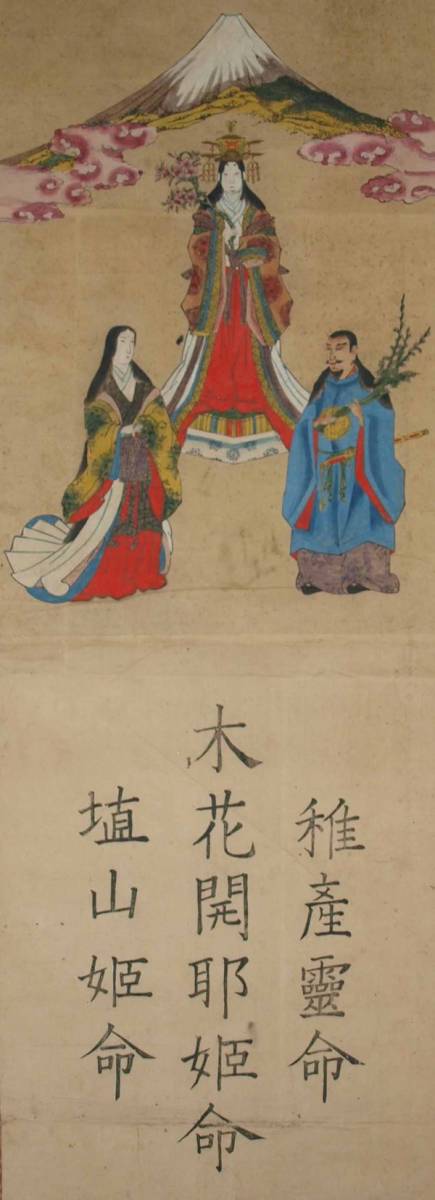 稚產靈命
木花開耶姫命
埴山姫命